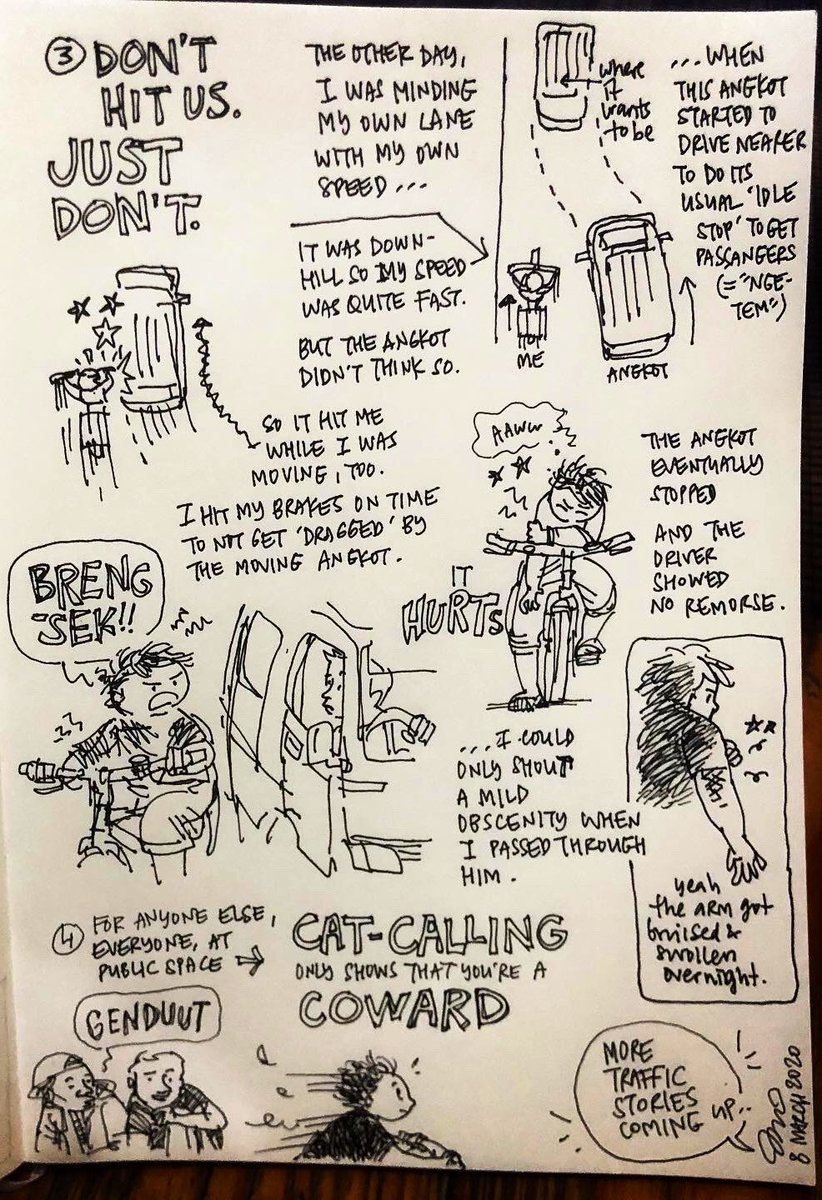 ③ DON'T
HIT US.
JUST
DON'T.
THE OTHER DAY,
I WAS MINDING
MY OWN LANE
WITH MY OWN
SPEED ...
where
it
wants
to be
... WHEN
THIS ANGKOT
STARTED TO
DRIVE NEARER
TO DO ITS
USUAL 'IDLE
STOP' TO GET
PASSANGERS
(="NGE-
TEM")
IT WAS DOWN-
HILL SO MY SPEED
WAS QUITE FAST.
BUT THE ANGKOT
DIDN'T THINK SO.
ME
ANGKOT
SO IT HIT ME
WHILE I WAS
MOVING, TOO.
I HIT MY BRAKES ON TIME
TO NOT GET 'DRAGGED' BY
THE MOVING ANGKOT.
AAWW
IT
HURTS
THE ANGKOT
EVENTUALLY
STOPPED
AND THE
DRIVER
SHOWED
NO REMORSE.
BRENG
-SEK!!
...I COULD
ONLY SHOUT
A MILD
OBSCENITY WHEN
I PASSED THROUGH
HIM.
yeah
the arm got
bruised &
swollen
overnight.
④ FOR ANYONE ELSE,
EVERYONE, AT
PUBLIC SPACE →
CAT-CALLING
ONLY SHOWS THAT YOU'RE A
COWARD
GENDUUT
MORE
TRAFFIC
STORIES
COMING UP..
8 MARCH 2020